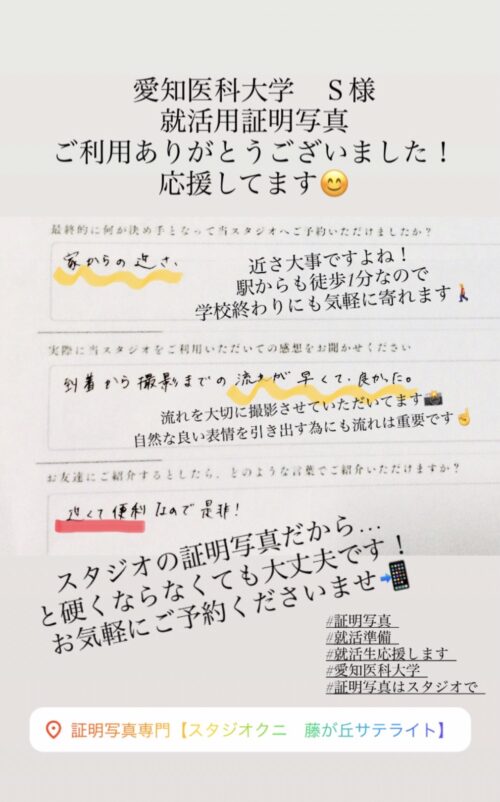 愛知医科大学　S様
就活用証明写真
ご利用ありがとうございました！
応援してます😊
最終的に何が決め手となって当スタジオへご予約いただけましたか？
家からの近さ、
近さ大事ですよね！
駅からも徒歩1分なので
学校終わりにも気軽に寄れます🚶
実際に当スタジオをご利用いただいての感想をお聞かせください
到着から撮影までの流れが早くて、良かった。
流れを大切に撮影させていただいてます📸
自然な良い表情を引き出す為にも流れは重要です☝️
お友達にご紹介するとしたら、どのような言葉でご紹介いただけますか？
近くて便利なので是非！
スタジオの証明写真だから…
と硬くならなくても大丈夫です！
お気軽にご予約くださいませ📲
#証明写真
#就活準備
#就活生応援します
#愛知医科大学
#証明写真はスタジオで
証明写真専門【スタジオクニ　藤が丘サテライト】